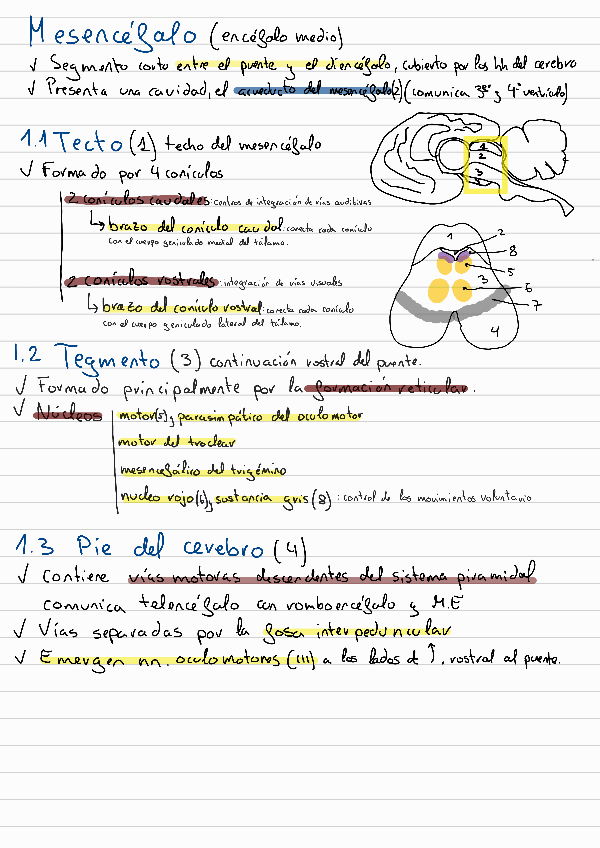 Mesencéfalo (encéfalo medio)
✓ Segmento corto entre el puente y el diencéfalo, cubierto por los hh del cerebro
✓ Presenta una cavidad, el acueducto del mesencéfalo(2) (comunica 3er y 4º ventrículo)
1.1 Tecto (1) techo del mesencéfalo
✓ Formado por 4 conículos
2 conículos caudales: centros de integración de vías auditivas
↳ brazo del conículo caudal: conecta cada conículo
con el cuerpo geniculado medial del tálamo.
2 conículos rostrales: integración de vías visuales
↳ brazo del conículo rostral: conecta cada conículo
con el cuerpo geniculado lateral del tálamo.
1
2
3
4
1
2
8
5
3
6
7
4
1.2 Tegmento (3) continuación rostral del puente.
✓ Formado principalmente por la formación reticular.
✓ Núcleos
motor(5) y parasimpático del oculomotor
motor del troclear
mesencefálico del trigémino
nucleo rojo(6) y sustancia gris (8) : control de los movimientos voluntario
1.3 Pie del cerebro (4)
✓ Contiene vías motoras descendentes del sistema piramidal
comunica telencéfalo con romboencéfalo y M.E
✓ Vías separadas por la fosa interpeduncular
✓ Emergen nn. oculomotores (III) a los lados de ↑, rostral al puente.